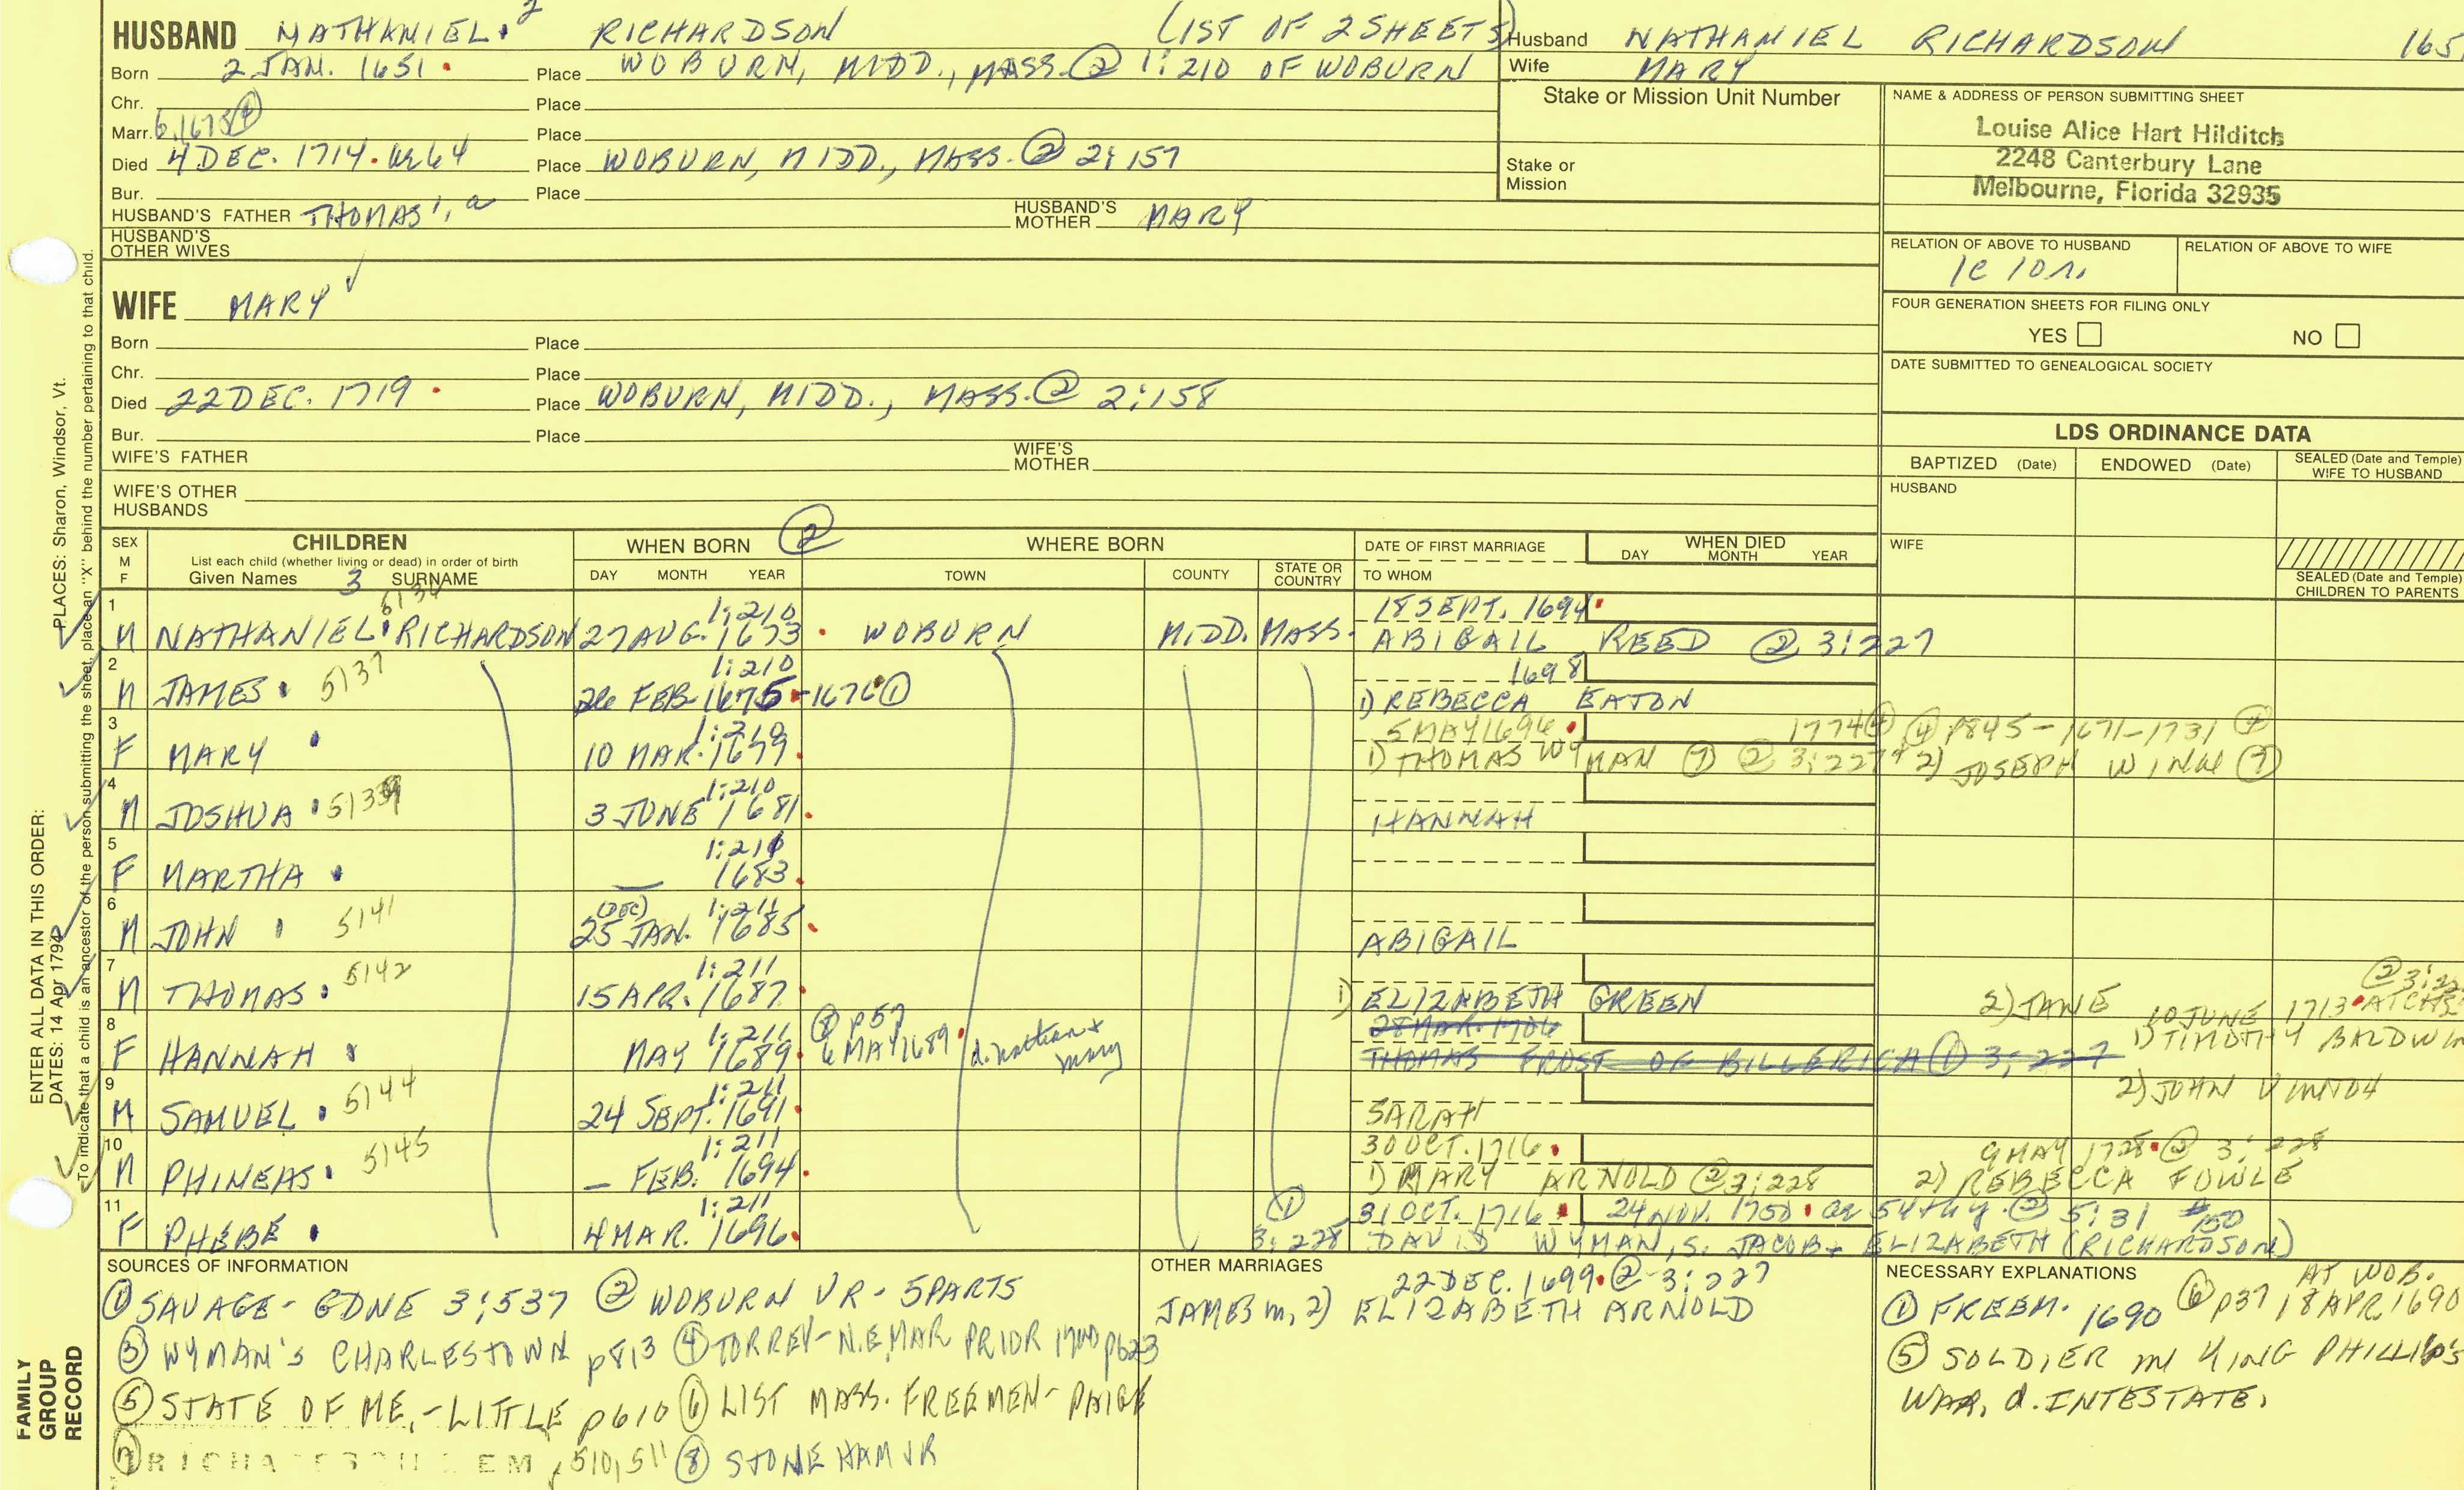 HUSBAND NATHANIEL 2 RICHARDSON (LIST OF 2 SHEETS) Husband NATHANIEL RICHARDSON 165
Born 2 JAN. 1651 Place WOBURN, MIDD., MASS. ② 1:210 OF WOBURN Wife MARY
Chr. Place
Marr. Place
Died 4 DEC. 1714. ae 64 Place WOBURN, MIDD., MASS. ② 2:157
Bur. Place
HUSBAND'S FATHER THOMAS 1, a HUSBAND'S MOTHER MARY
HUSBAND'S OTHER WIVES
Stake or Mission Unit Number
Stake or Mission
NAME & ADDRESS OF PERSON SUBMITTING SHEET
Louise Alice Hart Hilditch
2248 Canterbury Lane
Melbourne, Florida 32935
RELATION OF ABOVE TO HUSBAND RELATION OF ABOVE TO WIFE
1c 10r.
FOUR GENERATION SHEETS FOR FILING ONLY
YES NO
DATE SUBMITTED TO GENEALOGICAL SOCIETY
WIFE MARY
Born Place
Chr. Place
Died 22 DEC. 1719 Place WOBURN, MIDD., MASS. ② 2:158
Bur. Place
WIFE'S FATHER WIFE'S MOTHER
WIFE'S OTHER HUSBANDS
LDS ORDINANCE DATA
BAPTIZED (Date) ENDOWED (Date) SEALED (Date and Temple) WIFE TO HUSBAND
HUSBAND
WIFE
SEALED (Date and Temple) CHILDREN TO PARENTS
SEX M F CHILDREN WHEN BORN ② WHERE BORN DATE OF FIRST MARRIAGE WHEN DIED
List each child (whether living or dead) in order of birth DAY MONTH YEAR
Given Names 3 SURNAME DAY MONTH YEAR TOWN COUNTY STATE OR COUNTRY TO WHOM
1 5136 1:210 18 SEPT. 1694
M NATHANIEL RICHARDSON 27 AUG. 1673 WOBURN MIDD. MASS. ABIGAIL REED ② 3:227
2 5137 1:210 1698
M JAMES 26 FEB. 1675-1676 ① 1) REBECCA EATON
3 1:210 5 MAY 1696 1774 ④ ④ p845-1671-1731 ④
F MARY 10 MAR. 1679 1) THOMAS WYMAN ⑦ ② 3:227 2) JOSEPH WINN ⑦
4 1:210
M JOSHUA 5139 3 JUNE 1681 HANNAH
5 1:210
F MARTHA — 1683
6 5141 (DEC) 1:211
M JOHN 25 JAN. 1685 ABIGAIL
7 5142 1:211
M THOMAS 15 APR. 1687 1) ELIZABETH GREEN 2) JANE
8 1:211 ⑧ p57 28 MAR. 1706 10 JUNE 1713
F HANNAH MAY 1689 6 MAY 1689 d. Nathan + Mary THOMAS FROST OF BILLERICA ① 3:227 1) TIMOTHY BALDWIN
9 5144 1:211 2) JOHN VINTON
M SAMUEL 24 SEPT. 1691 SARAH
10 5145 1:211 30 OCT. 1716 9 MAY 1728 ② 3:228
M PHINEAS — FEB. 1694 1) MARY ARNOLD ② 3:228 2) REBECCA FOWLE
11 1:211 ① 31 OCT. 1716 24 NOV. 1750 ae 54th y. ② 5:31
F PHEBE 4 MAR. 1696 3:228 DAVID WYMAN, S. JACOB + ELIZABETH (RICHARDSON)
SOURCES OF INFORMATION
① SAVAGE - GDNE 3:537 ② WOBURN VR - 5 PARTS
③ WYMAN'S CHARLESTOWN p813 ④ TORREY - N.E. MAR PRIOR 1700 p623
⑤ STATE OF ME. - LITTLE p610 ⑥ LIST MASS. FREEMEN - PAIGE
⑦ RICHARDSON MEM 510, 511 ⑧ STONEHAM VR
OTHER MARRIAGES
22 DEC. 1699 ② 3:227
JAMES m, 2) ELIZABETH ARNOLD
NECESSARY EXPLANATIONS
AT WOB.
① FREEM. 1690 ⑥ p37 18 APR 1690
⑤ SOLDIER in KING PHILLIP'S
WAR, d. INTESTATE.
ENTER ALL DATA IN THIS ORDER:
DATES: 14 Apr 1794 PLACES: Sharon, Windsor, Vt.
To indicate that a child is an ancestor of the person submitting the sheet, place an "X" behind the number pertaining to that child.
FAMILY
GROUP
RECORD